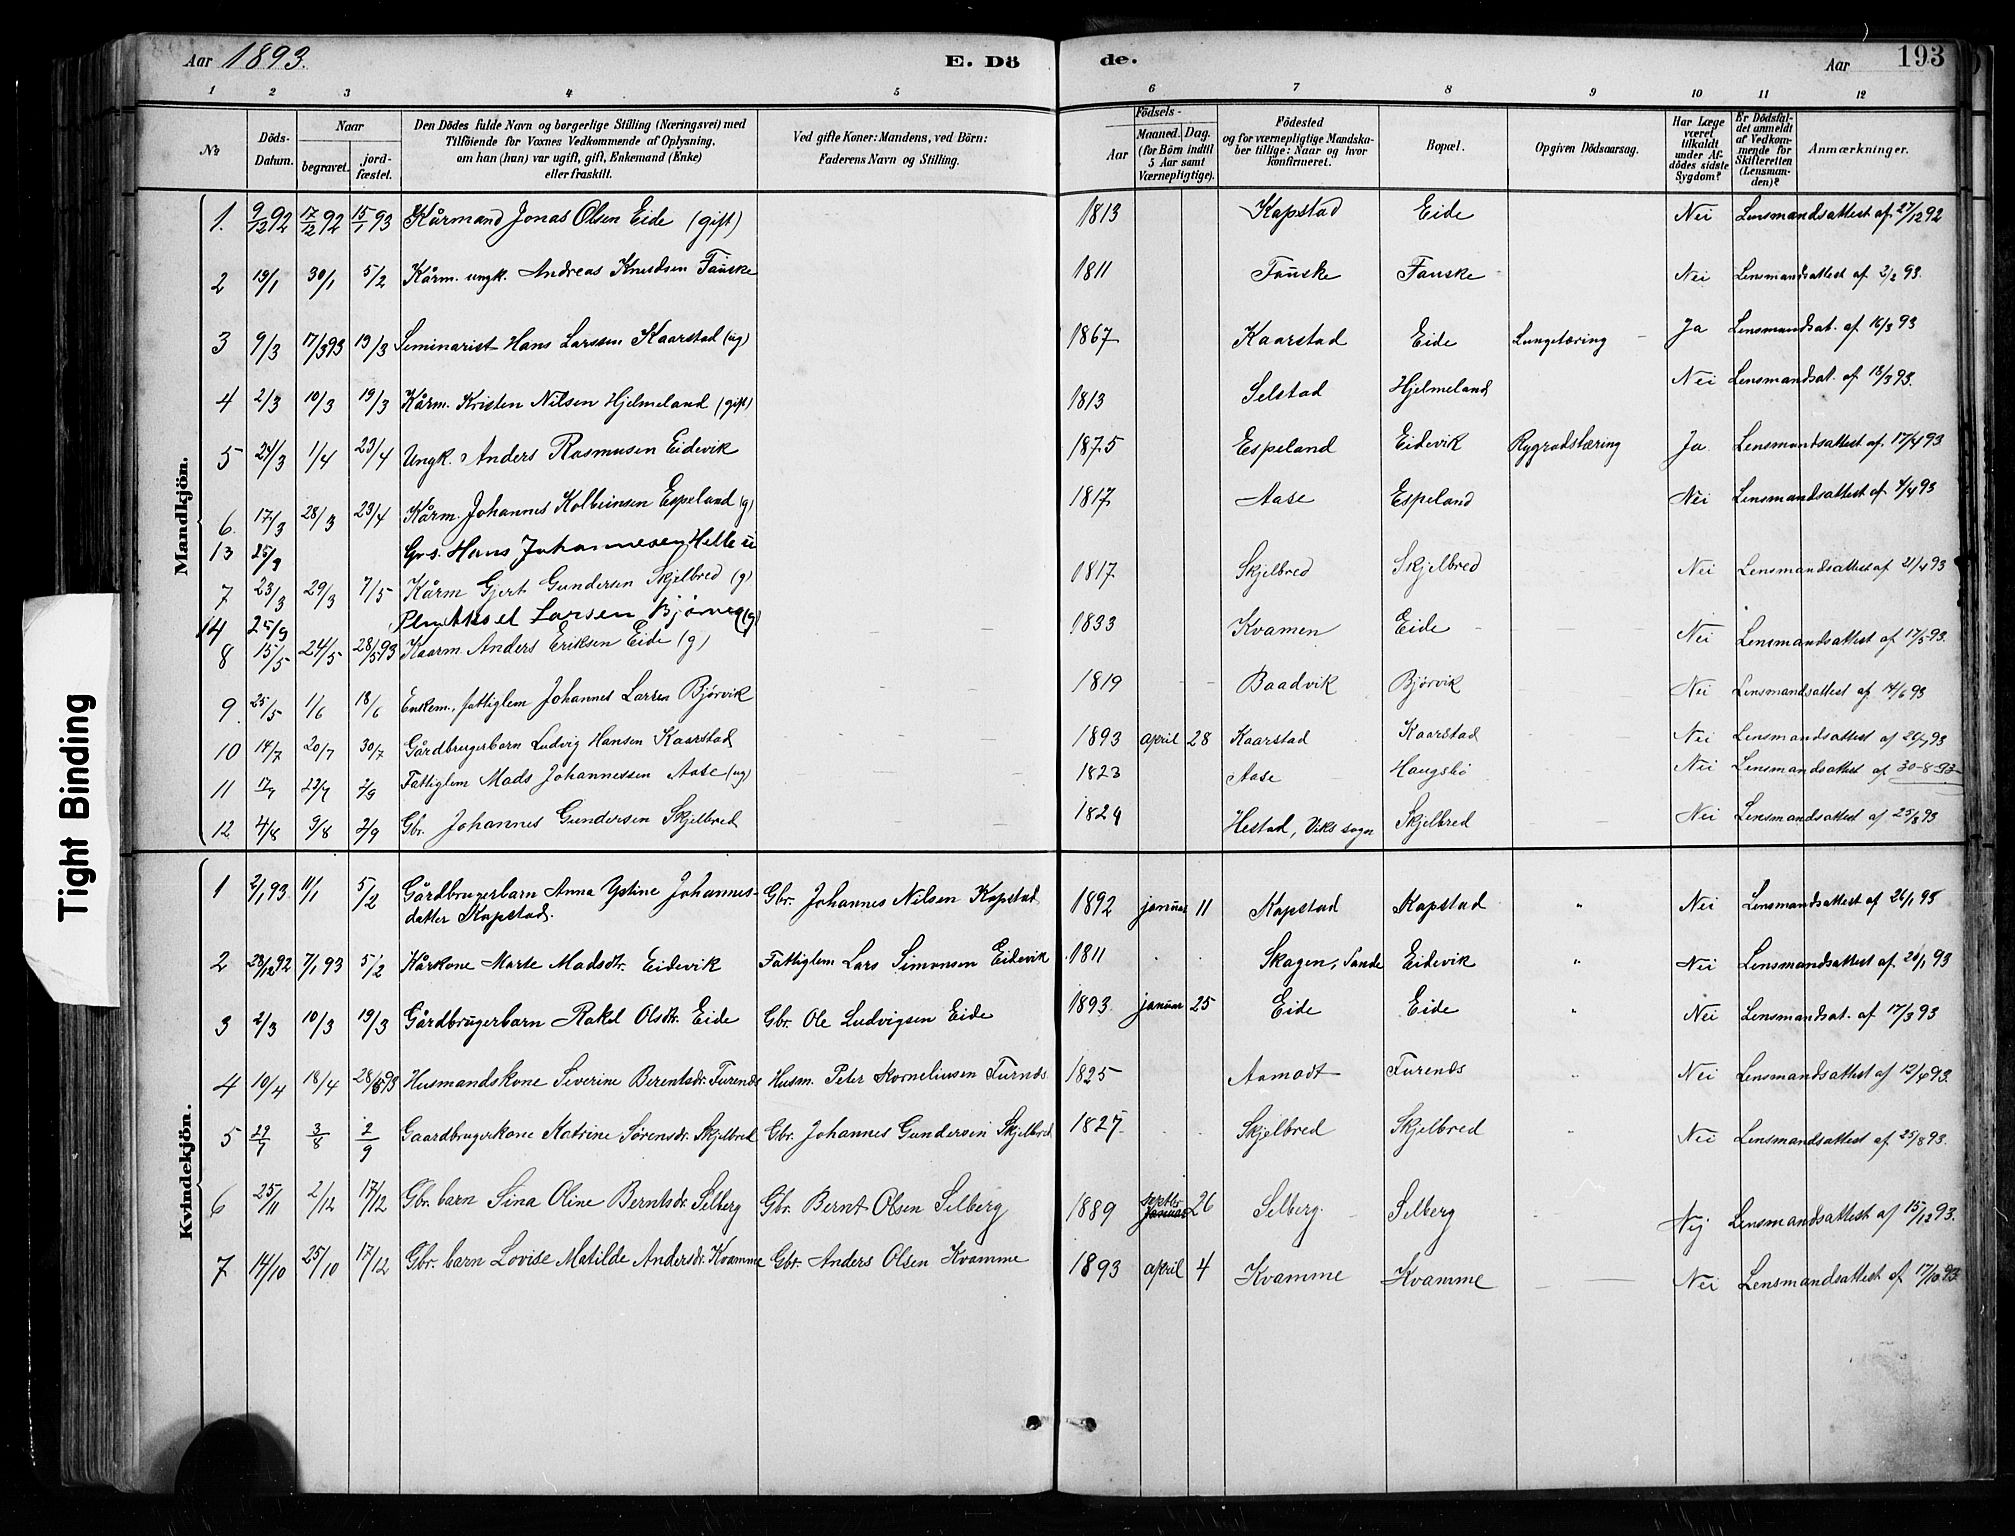 Aar 1893. E. Dö de. Aar 193
1 2 3 4 5 6 7 8 9 10 11 12
No
Döds-Datum.
Naar
begravet.
jord-fæstet.
Den Dödes fulde Navn og borgerlige Stilling (Næringsvei) med
Tilföiende for Voxnes Vedkommende af Oplysning,
om han (hun) var ugift, gift, Enkemand (Enke)
eller fraskilt.
Ved gifte Koner: Mandens, ved Börn:
Faderens Navn og Stilling.
Födsels-
Aar
Maaned. Dag.
(for Börn indtil
5 Aar samt
Værnepligtige).
Födested
og for værnepligtige Mandska-
ber tillige: Naar og hvor
konfirmeret.
Bopæl.
Opgiven Dödsaarsag.
Har Læge
været
tilkaldt
under Af-
dödes sidste
Sygdom?
Er Dödsfal-
det anmeldt
af Vedkom-
mende for
Skifteretten
(Lensman-
den)?
Anmærkninger.
Mandkjön.
1. 9/12 92 17/12 92 15/1 93 Kårmand Jonas Olsen Eide (gift) 1813 Kapstad Eide Nei Lensmandsattest af 27/12 92
2 19/1 30/1 5/2 Kårm. ungk. Andreas Knudsen Fauske 1811 Fauske Fauske Nei Lensmandsattest af 2/2 93.
3 9/3 17/3 93 19/3 Seminarist Hans Larssen Kaarstad (ug) 1867 Kaarstad Eide Lungetæring Ja Lensmandsat. af 16/3 93
4 2/3 10/3 19/3 Kårm. Kristen Nilsen Hjelmeland (gift) 1813 Selstad Hjelmeland Nei Lensmandsat. af 18/3 93.
5 24/3 1/4 23/4 Ungk. Anders Rasmusen Eidevik 1875 Espeland Eidevik Rygradstæring Ja Lensmandsattest af 17/4 93
6. 17/3 28/3 23/4 Kårm. Johannes Kolbeinsen Espeland (g) 1817 Aase Espeland Nei Lensmandsattest af 4/4 93
13 25/9 Hans Johannesen Helle
7 23/3 29/3 7/5 Kårm Gjert Gundersen Skjelbred (g) 1817 Skjelbred Skjelbred Nei Lensmandsattest af 21/4 93
14 25/9 Larsen (g)
8 15/5 24/5 28/5 93 Kaarm. Anders Eriksen Eide (g) 1833 Kvamen Eide Nei Lensmandsattest af 17/5 93.
9. 25/5 1/6 18/6 Enkem., fattiglem Johannes Larsen Bjørvik 1819 Baadvik Bjørvik Nei Lensmandsattest af 14/6 93
10 14/7 20/7 30/7 Gårdbrugerbarn Ludvig Hansen Kaarstad 1893 april 28 Kaarstad Kaarstad Nei Lensmandsattest af 20/7 93
11 17/7 23/7 2/9 Fattiglem Mads Johannessen Aase (ug) 1823 Aase Haugsbø Nei Lensmandsattest af 30-8-93
12 4/8 9/8 2/9 Gbr. Johannes Gundersen Skjelbred 1829 Hestad, Viks sogn Skjelbred Nei Lensmandsattest af 25/8 93
Kvindekjön.
1 2/1 93 11/1 5/2 Gårdbrugerbarn Anna Ystine Johannes-
datter Kapstad. Gbr. Johannes Nilsen Kapstad 1892 januar 11 Kapstad Kapstad " Nei Lensmandsattest af 26/1 93
2 28/12 92 7/1 93 5/2 Kårkone Marte Madsdtr. Eidevik Fattiglem Lars Simonsen Eidevik 1811 Skagen, Sande Eidevik " Nei Lensmandsattest af 20/1 93
3 2/3 10/3 19/3 Gårdbrugerbarn Rakel Olsdtr. Eide Gbr. Ole Ludvigsen Eide 1893 januar 25 Eide Eide " Nei Lensmandsat. af 17/3 93
4 10/4 18/4 28/5 93 Husmandskone Severine Berentsdr. Furenes Husm. Peter Korneliusen Furnes 1825 Aamodt Furenes " Nei Lensmandsattest af 12/4 93.
5 29/7 3/8 2/9 Gaardbrugerkone Katrine Sørensdr. Skjelbred Gbr. Johannes Gundersen Skjelbred 1827 Skjelbred Skjelbred Nei Lensmandsattest af 25/8 93.
6 25/11 2/12 17/12 Gbr. barn Sina Oline Berntsdr. Selberg Gbr. Bernt Olsen Selberg 1889 septbr. Januar 26 Selberg Selberg Nej Lensmandsattest af 15/12 93.
7 14/10 25/10 17/12 Gbr. barn Lovise Matilde Andersdr. Kvamme Gbr. Anders Olsen Kvamme 1893 april 4 Kvamme Kvamme Nei Lensmandsattest af 17/10 93.
Tight Binding